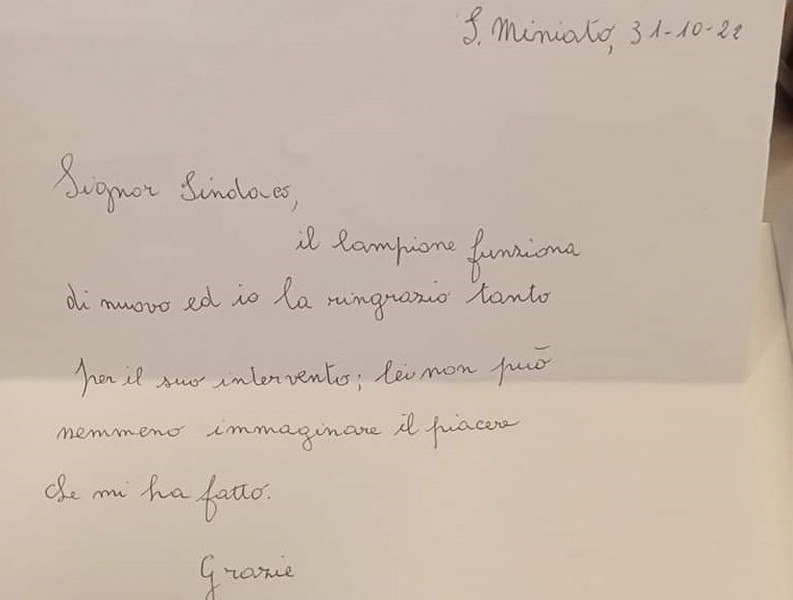 S. Miniato, 31-10-22
Signor Sindaco,
il lampione funziona
di nuovo ed io la ringrazio tanto
per il suo intervento; lei non può
nemmeno immaginare il piacere
che mi ha fatto.
Grazie